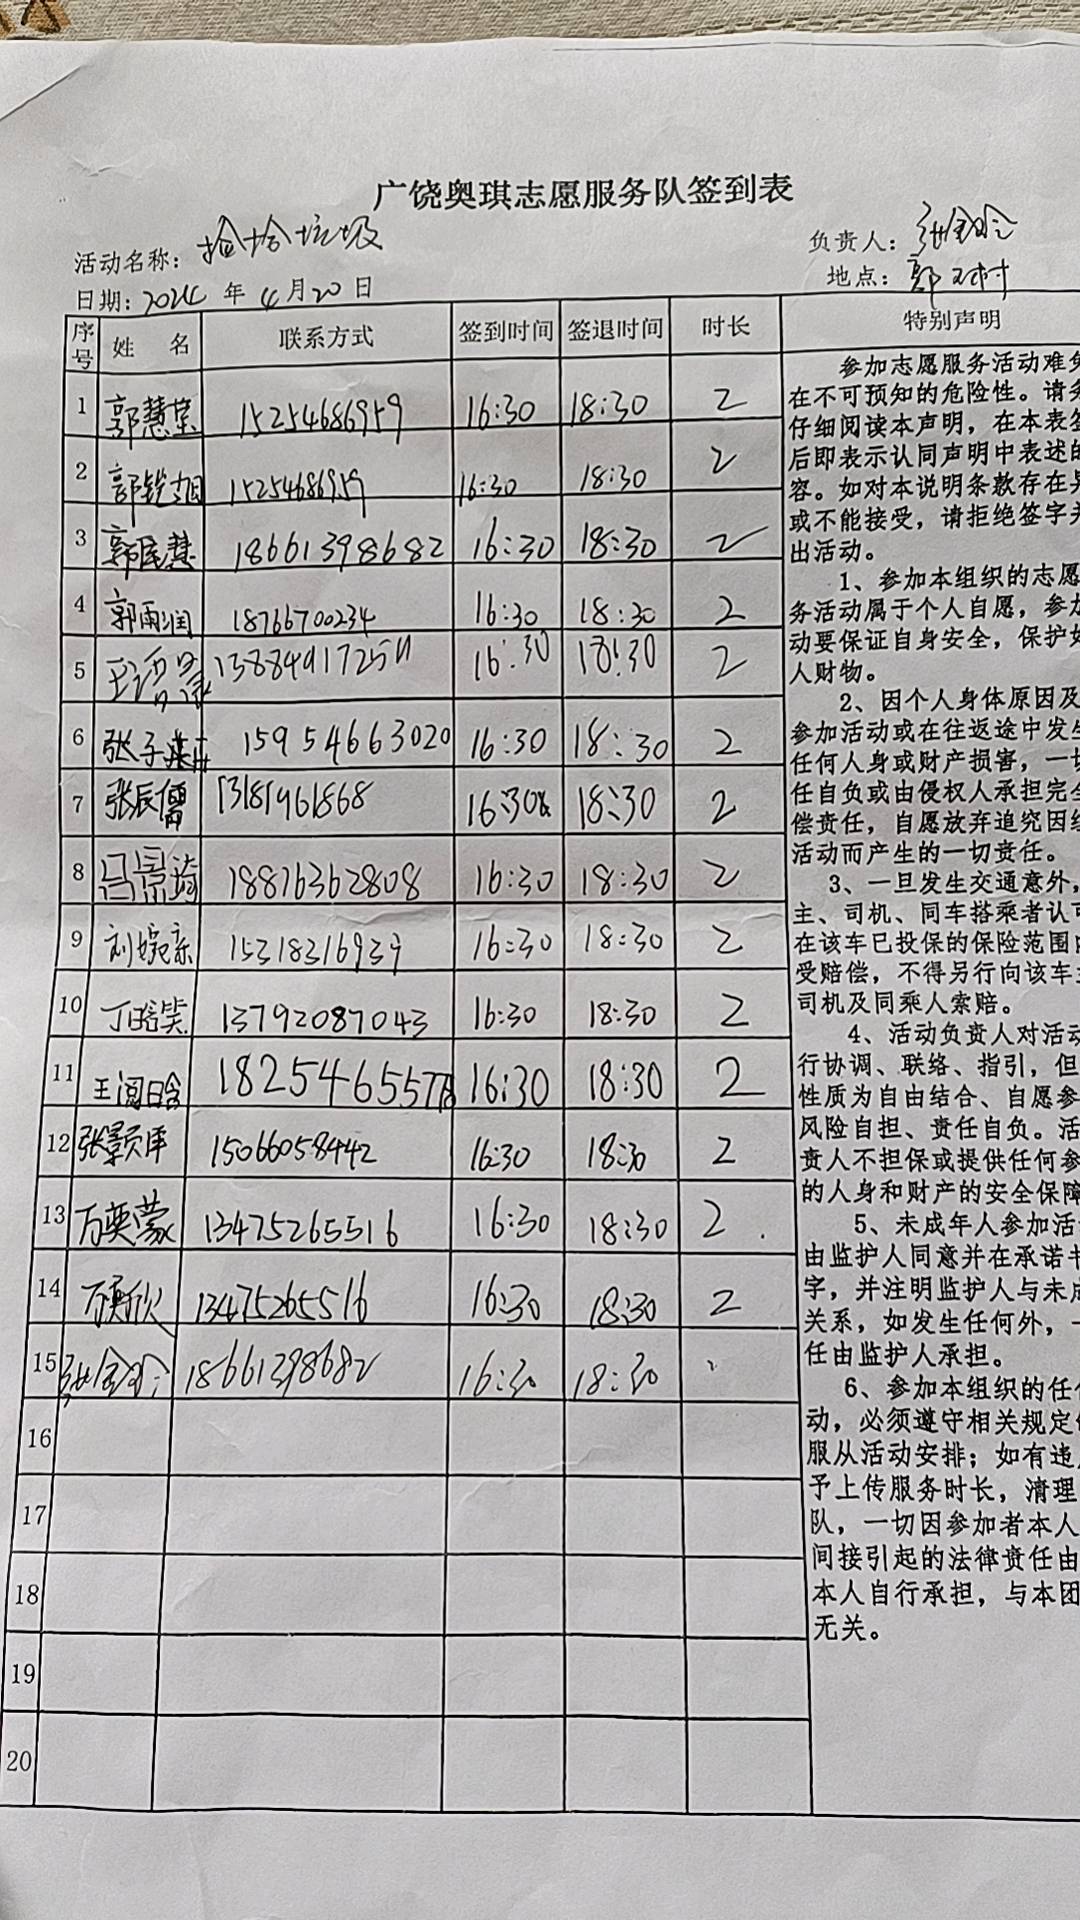 广饶奥琪志愿服务队签到表
活动名称：捡拾垃圾 负责人：
日期：2024 年 4 月 20 日 地点：郭 村
序号 姓 名 联系方式 签到时间 签退时间 时长 特别声明
1 郭慧莹 15254686959 16:30 18:30 2
2 郭 旭 15254686959 16:30 18:30 2
3 郭民慧 18661398682 16:30 18:30 2
4 郭雨润 18766700234 16:30 18:30 2
5 王 16:30 18:30 2
6 张子 15954663020 16:30 18:30 2
7 张辰儒 13181961868 16:30 18:30 2
8 吕景 18876362808 16:30 18:30 2
9 刘婉 15318316939 16:30 18:30 2
10 丁 笑 13792087043 16:30 18:30 2
11 王 16:30 18:30 2
12 张 15066058442 16:30 18:30 2
13 万奕蒙 13475265516 16:30 18:30 2
14 万奕欣 13475265516 16:30 18:30 2
15 18661398682 16:30 18:30
16
17
18
19
20
参加志愿服务活动难免
在不可预知的危险性。请务
仔细阅读本声明，在本表签
后即表示认同声明中表述的
容。如对本说明条款存在异
或不能接受，请拒绝签字并
出活动。
1、参加本组织的志愿
务活动属于个人自愿，参加
动要保证自身安全，保护好
人财物。
2、因个人身体原因及
参加活动或在往返途中发生
任何人身或财产损害，一切
任自负或由侵权人承担完全
偿责任，自愿放弃追究因组
活动而产生的一切责任。
3、一旦发生交通意外，
主、司机、同车搭乘者认可
在该车已投保的保险范围内
受赔偿，不得另行向该车主
司机及同乘人索赔。
4、活动负责人对活动
行协调、联络、指引，但
性质为自由结合、自愿参
风险自担、责任自负。活
责人不担保或提供任何参
的人身和财产的安全保障
5、未成年人参加活
由监护人同意并在承诺书
字，并注明监护人与未成
关系，如发生任何外，一
任由监护人承担。
6、参加本组织的任何
动，必须遵守相关规定
服从活动安排；如有违
予上传服务时长，清理
队，一切因参加者本人
间接引起的法律责任由
本人自行承担，与本团
无关。